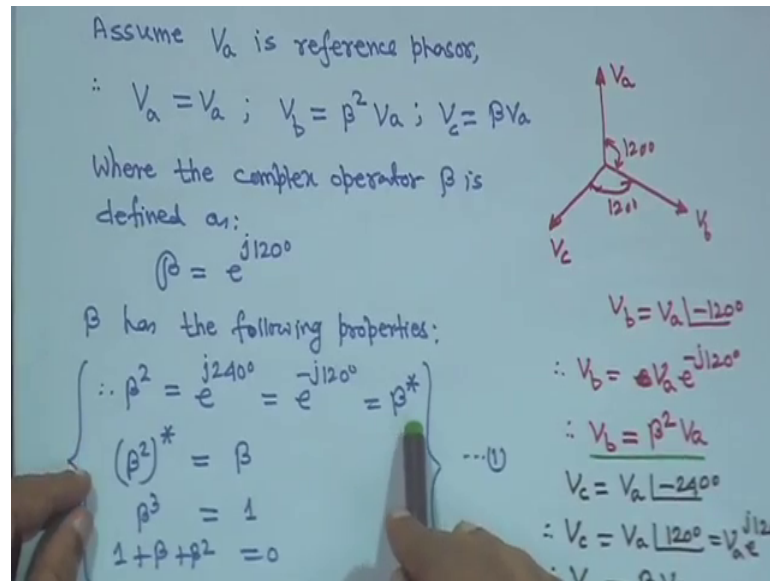 Assume Va is reference phasor,
∴ Va = Va ; Vb = β² Va ; Vc = β Va
Where the complex operator β is
defined as:
β = e^j120°
β has the following properties:
∴ β² = e^j240° = e^-j120° = β*
(β²)* = β
β³ = 1
1 + β + β² = 0
---(1)
Va
120°
120°
Vb
Vc
Vb = Va ∠-120°
∴ Vb = Va e^-j120°
∴ Vb = β² Va
Vc = Va ∠-240°
∴ Vc = Va ∠120° = Va e^j12